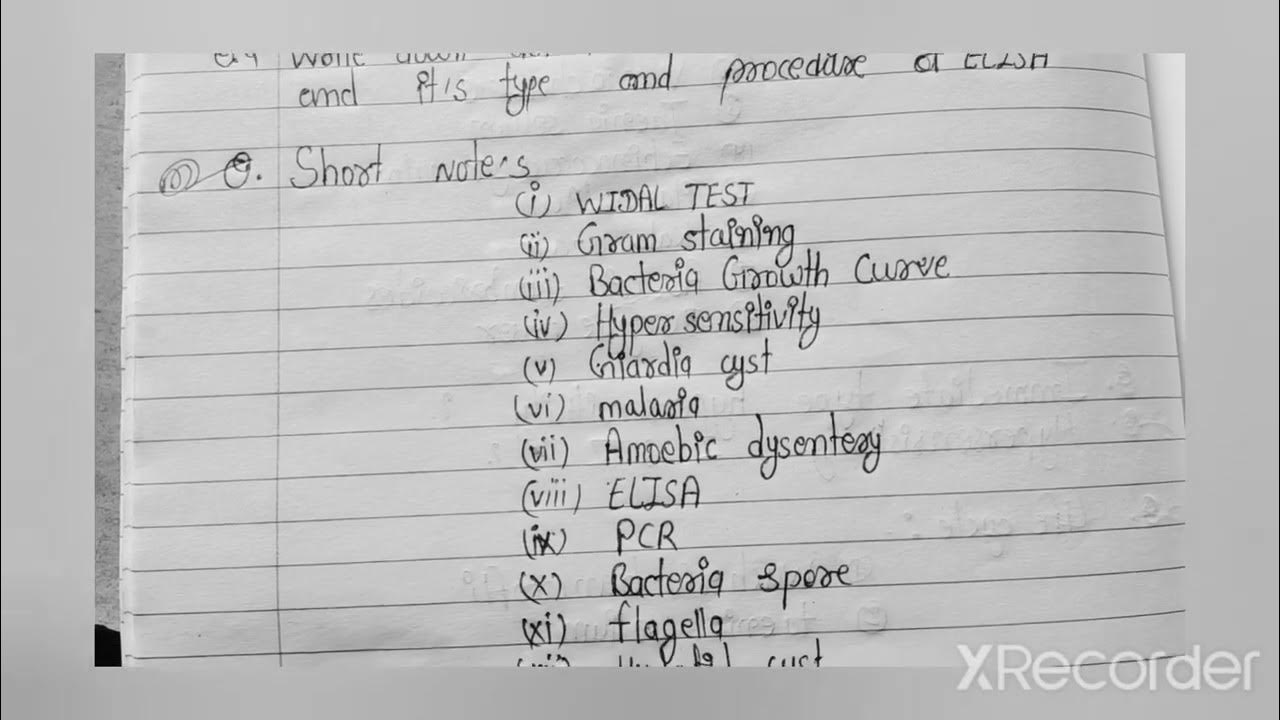 and it's type and procedure of ELISA
Q. Short note's
(i) WIDAL TEST
(ii) Gram staining
(iii) Bacteria Growth Curve
(iv) Hyper sensitivity
(v) Giardia cyst
(vi) malaria
(vii) Amoebic dysentery
(viii) ELISA
(ix) PCR
(x) Bacteria spore
(xi) flagella
cyst
XRecorder